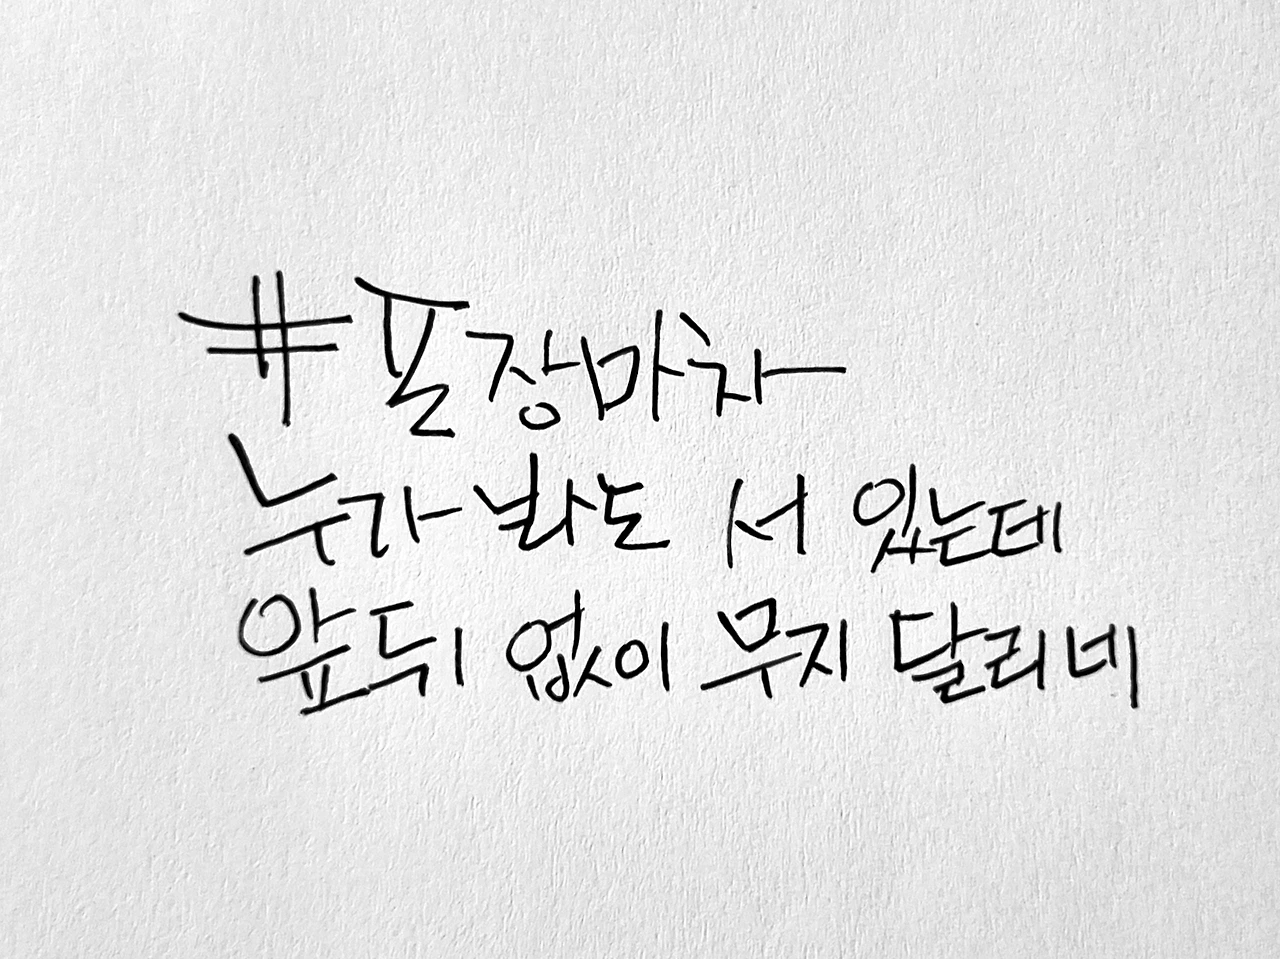 #포장마차
누가 봐도 서 있는데
앞뒤 없이 무지 달리네